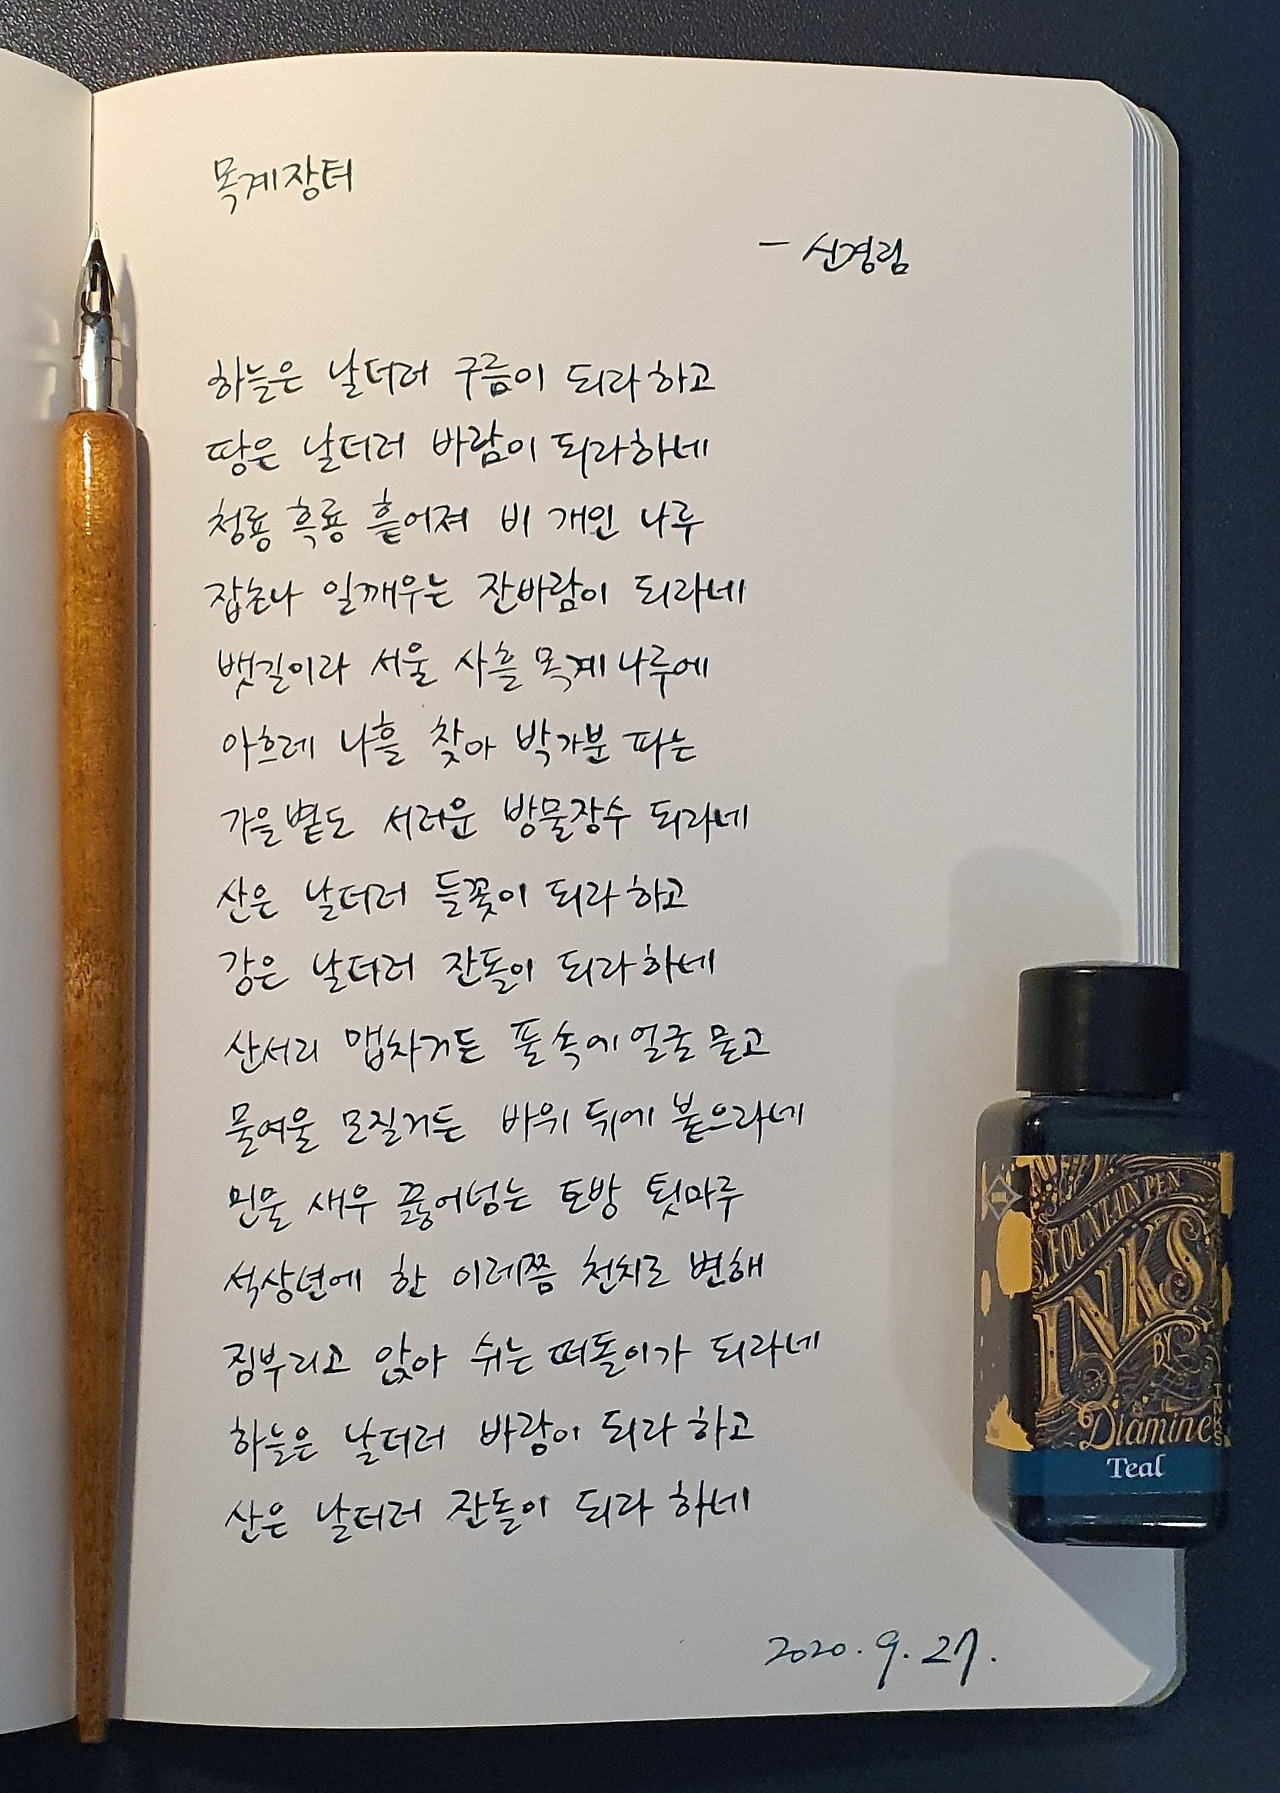 목계장터
- 신경림
하늘은 날더러 구름이 되라 하고
땅은 날더러 바람이 되라하네
청룡 흑룡 흩어져 비 개인 나루
잡초나 일깨우는 잔바람이 되라네
뱃길이라 서울 사흘 목계 나루에
아흐레 나흘 찾아 박가분 파는
가을볕도 서러운 방물장수 되라네
산은 날더러 들꽃이 되라 하고
강은 날더러 잔돌이 되라 하네
산서리 맵차거든 풀 속에 얼굴 묻고
물여울 모질거든 바위 뒤에 붙으라네
민물 새우 끓어넘는 토방 툇마루
석삼년에 한 이레쯤 천치로 변해
짐부리고 앉아 쉬는 떠돌이가 되라네
하늘은 날더러 바람이 되라 하고
산은 날더러 잔돌이 되라 하네
2020. 9. 27.
FOUNTAIN PEN
INKS
BY
Diamine
Teal